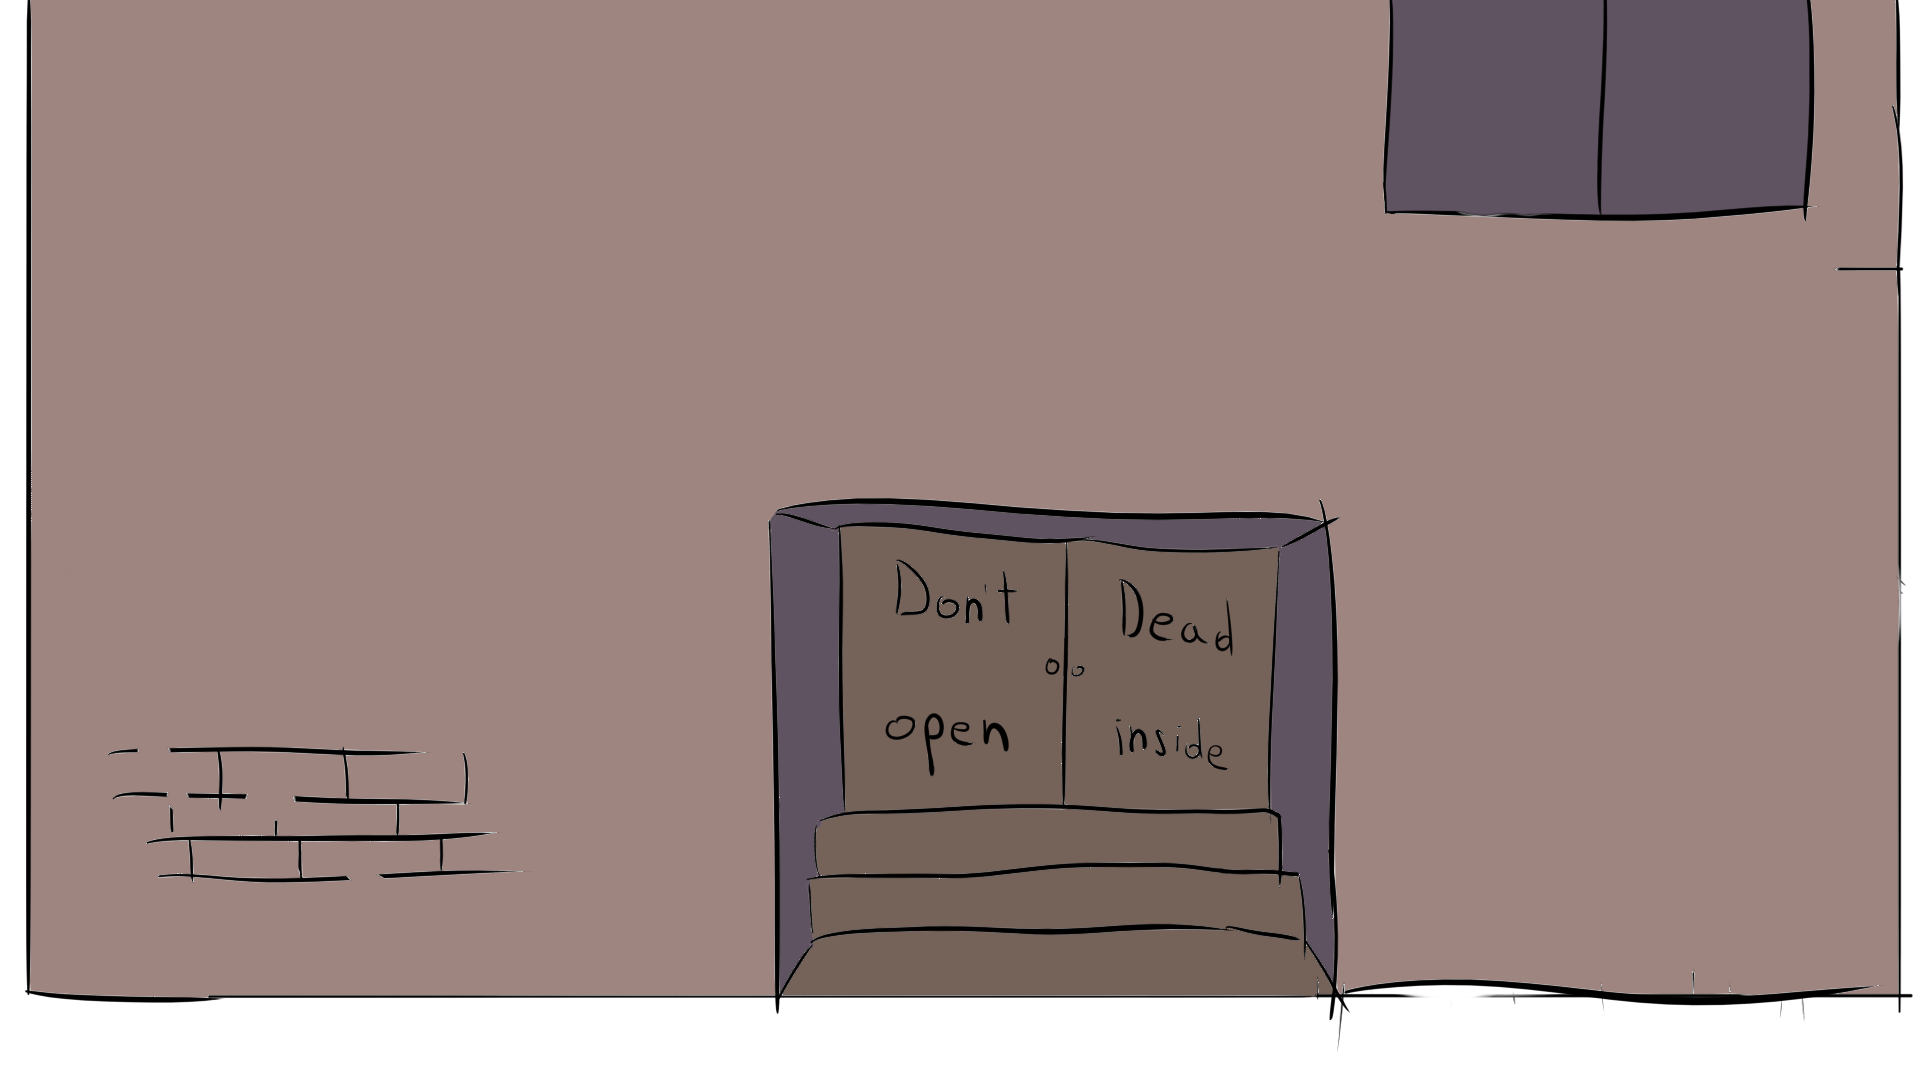 Don't
open
Dead
inside